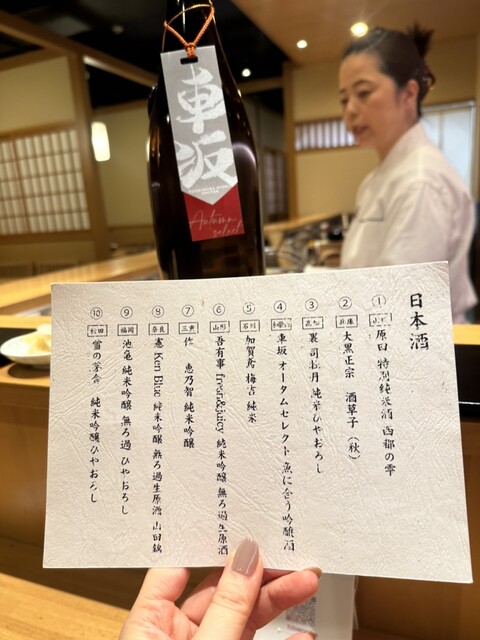 車坂
Autumn
select
日本酒
① 山口 原田 特別純米酒 西都の雫
② 兵庫 大黒正宗 酒草子（秋）
③ 高知 裏司牡丹 純米ひやおろし
④ 和歌山 車坂 オータムセレクト 魚に合う吟醸酒
⑤ 石川 加賀鳶 梅吉 純米
⑥ 山形 吾有事 fresh&juicy 純米吟醸 無ろ過生原酒
⑦ 三重 作 恵乃智 純米吟醸
⑧ 奈良 Keri Blue 純米吟醸 無ろ過生原酒 山田錦
⑨ 福岡 池亀 純米吟醸 無ろ過 ひやおろし
⑩ 秋田 雪の茅舎 純米吟醸ひやおろし